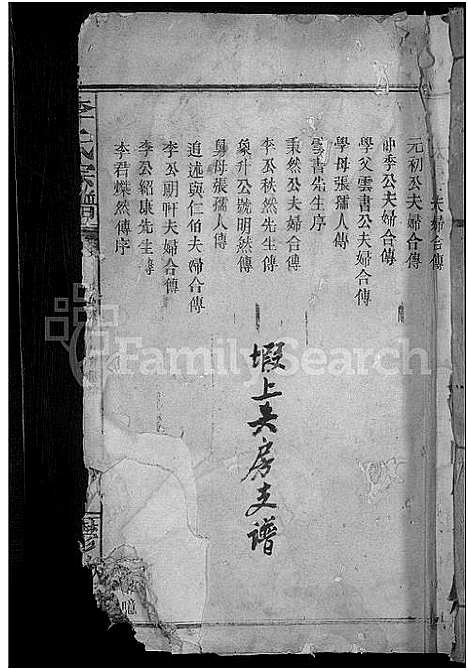 夫婦合傳
元初公夫婦合傳
仲季公夫婦合傳
學父雲書公夫婦合傳
學母張孺人傳
雲書先生序
秉然公夫婦合傳
李公秋然先生傳
象升公號明然傳
舅母張孺人傳
追述與仁伯夫婦合傳
李公明軒夫婦合傳
李公紹康先生傳
李君燦然傳序
塅上夫房支谱
李氏宗譜
FamilySearch